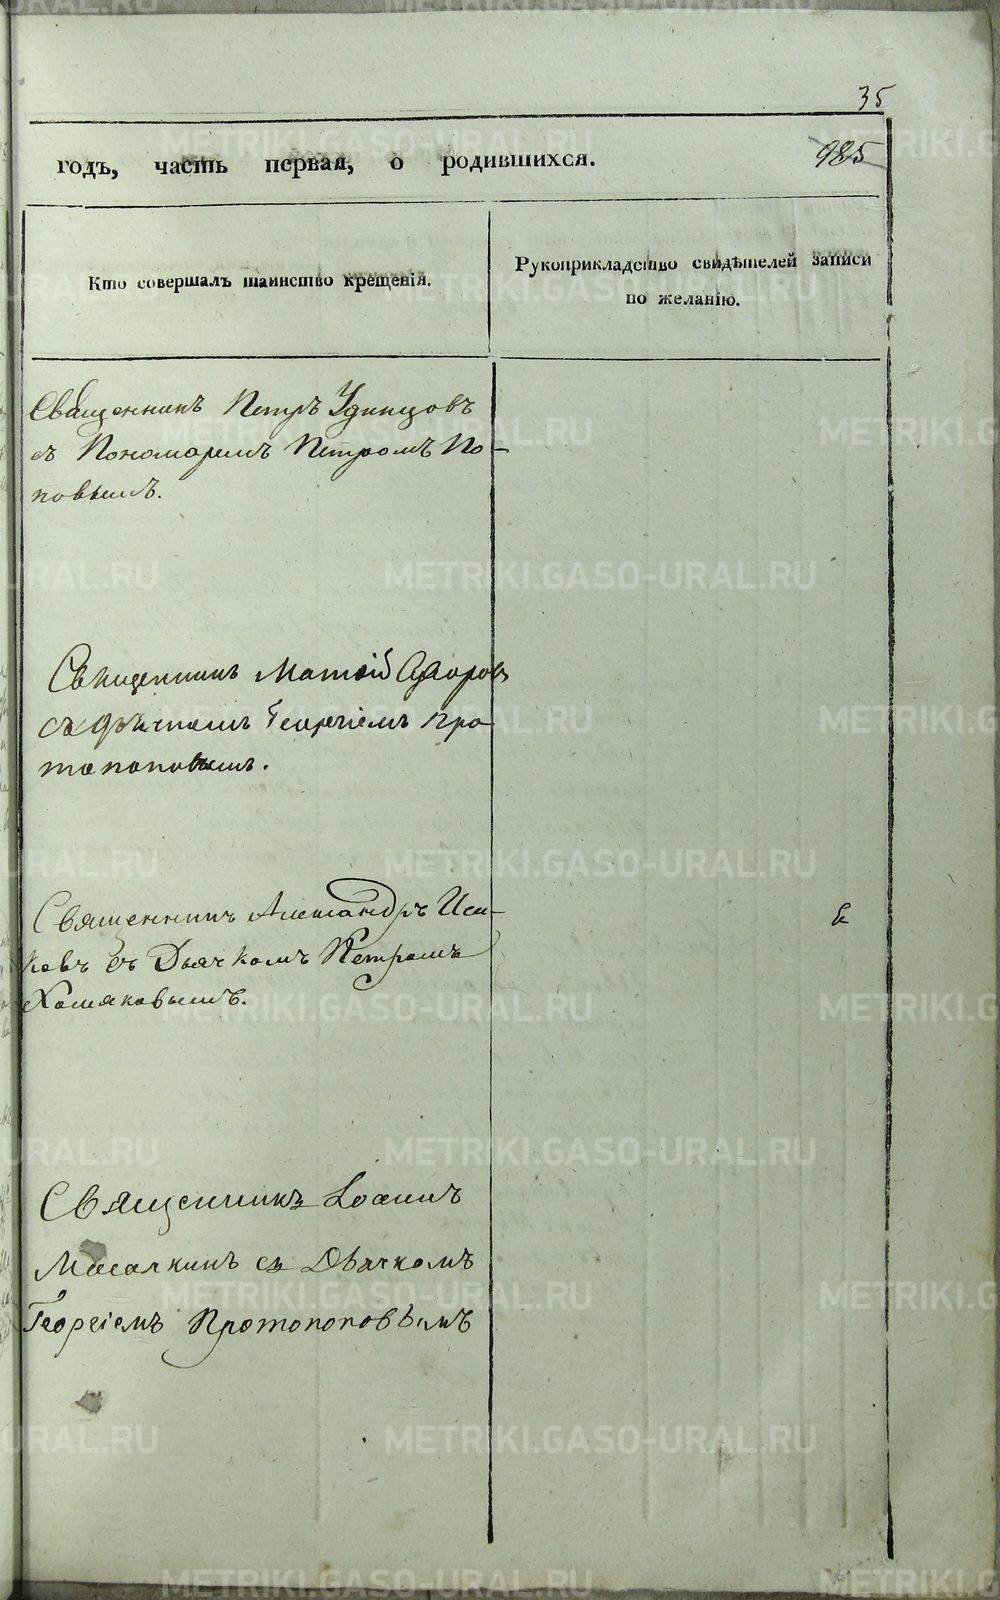 35
годъ, часть первая, о родившихся.
985
Кто совершалъ таинство крещенія.
Рукоприкладство свидѣтелей записи
по желанію.
Священникъ Петръ Удинцовъ
съ Пономаремъ Петромъ По-
повымъ.
Священникъ Матѳій
съ дьячкомъ Георгіемъ Про
топоповымъ.
Священникъ Александръ Иса-
ковъ съ Дьячкомъ Петромъ
Хомяковымъ.
Священникъ Іоаннъ
съ Дьячкомъ
Георгіемъ Протопоповымъ
METRIKI.GASO-URAL.RU